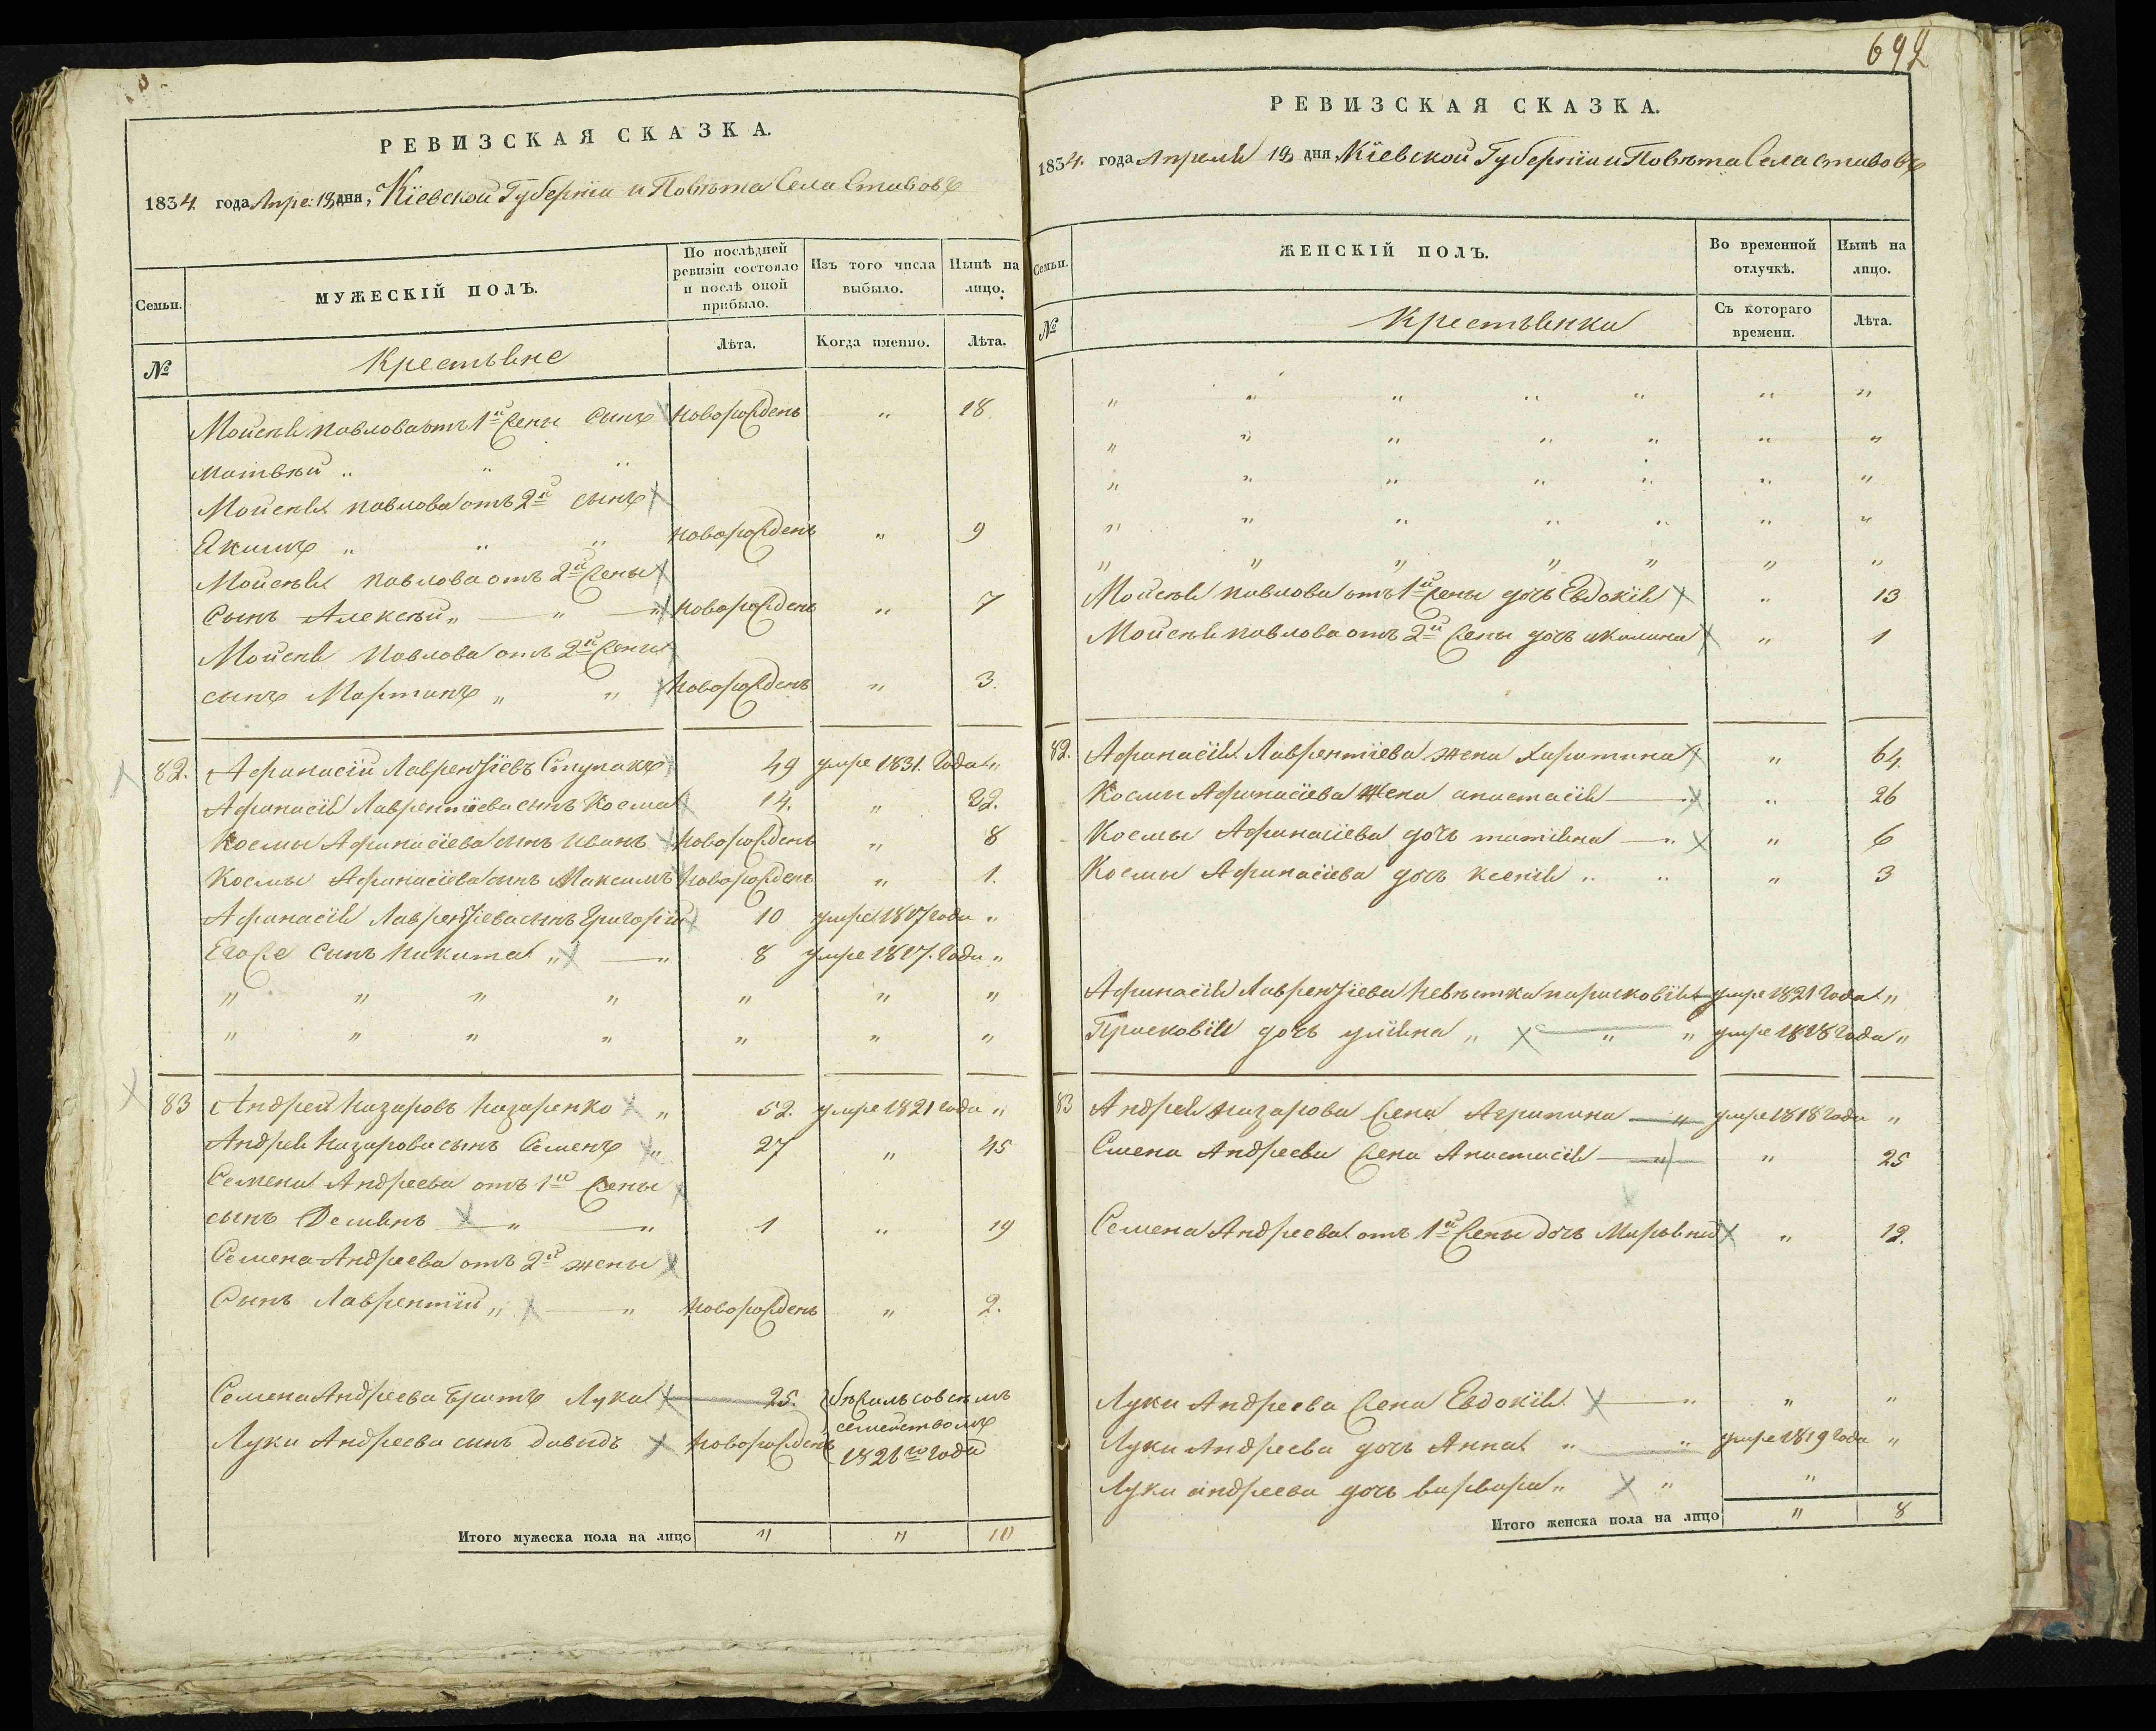 РЕВИЗСКАЯ СКАЗКА.
1834. года Апре: 19 дня, Кіевской Губерніи и Повѣта Села Ставовъ
Семьи.
МУЖЕСКІЙ ПОЛЪ.
По послѣдней ревизіи состояло и послѣ оной прибыло.
Изъ того числа выбыло.
Нынѣ на лицо.
№
Крестьяне
Лѣта.
Когда именно.
Лѣта.
Мойсея Павлова отъ 1й жены сынъ новорожденъ " 18
Матвѣй " " "
Мойсея Павлова отъ 2й сынъ
Якимъ " " " новорожденъ " 9
Мойсея Павлова отъ 2й жены
Сынъ Алексѣй " — " — " новорожденъ " 7
Мойсея Павлова отъ 2й жены
сынъ Мартинъ " " новорожденъ " 3.
82. Афанасій Лаврентіевъ Ступакъ 49 умре 1831. Года "
Афанасія Лаврентіева сынъ Косма 14. " 32.
Космы Афанасіева сынъ Иванъ новорожденъ " 8
Космы Афанасіева сынъ Максимъ новорожденъ " 1.
Афанасія Лаврентіева сынъ Григорій 10 умре 1817 года "
Егоже сынъ Никита " — " 8 умре 1817. Года "
" " " " " " "
" " " " " " "
83 Андрей Назаровъ Назаренко " 52. умре 1821 года "
Андрея Назарова сынъ Семенъ " 27 " 45
Семена Андреева отъ 1й жены
сынъ Демянъ — " — " 1 " 19
Семена Андреева отъ 2й жены
Сынъ Лаврентій " — " новорожденъ " 2.
Семена Андреева братъ Лука — 25. бѣжалъ совсемъ
семействомъ
Луки Андреева сынъ Давидъ новорожденъ 1821го года
Итого мужеска пола на лицо " " 10
692
РЕВИЗСКАЯ СКАЗКА.
1834. года Апреля 19 дня Кіевской Губерніи и Повѣта Села Ставовъ
Семьи.
ЖЕНСКІЙ ПОЛЪ.
Во временной отлучкѣ.
Нынѣ на лицо.
№
Крестьянки
Съ котораго времени.
Лѣта.
" " " " " " "
" " " " " " "
" " " " " " "
" " " " " " "
" " " " " " "
Мойсея Павлова отъ 1й жены дочь Евдокія " 13
Мойсея Павлова отъ 2й жены дочь Акилина " 1
82. Афанасія Лаврентіева жена Харитина " 64
Космы Афанасіева жена анастасія — " " 26
Космы Афанасіева дочь татіяна — " " 6
Космы Афанасіева дочь ксенія " " " 3
Афанасія Лаврентіева невѣстка парасковія умре 1821 года "
Прасковіи дочь уліяна " — " " умре 1818 года "
83 Андрея Назарова жена Агрипина — " умре 1818 года "
Смена Андреева жена Анастасія — " " 25
Семена Андреева отъ 1й жены дочь Марьяна " 12.
Луки Андреева жена Евдокія — " " "
Луки Андреева дочь Анна " " умре 1819 года "
Луки андреева дочь варвара " " "
Итого женска пола на лицо " 8